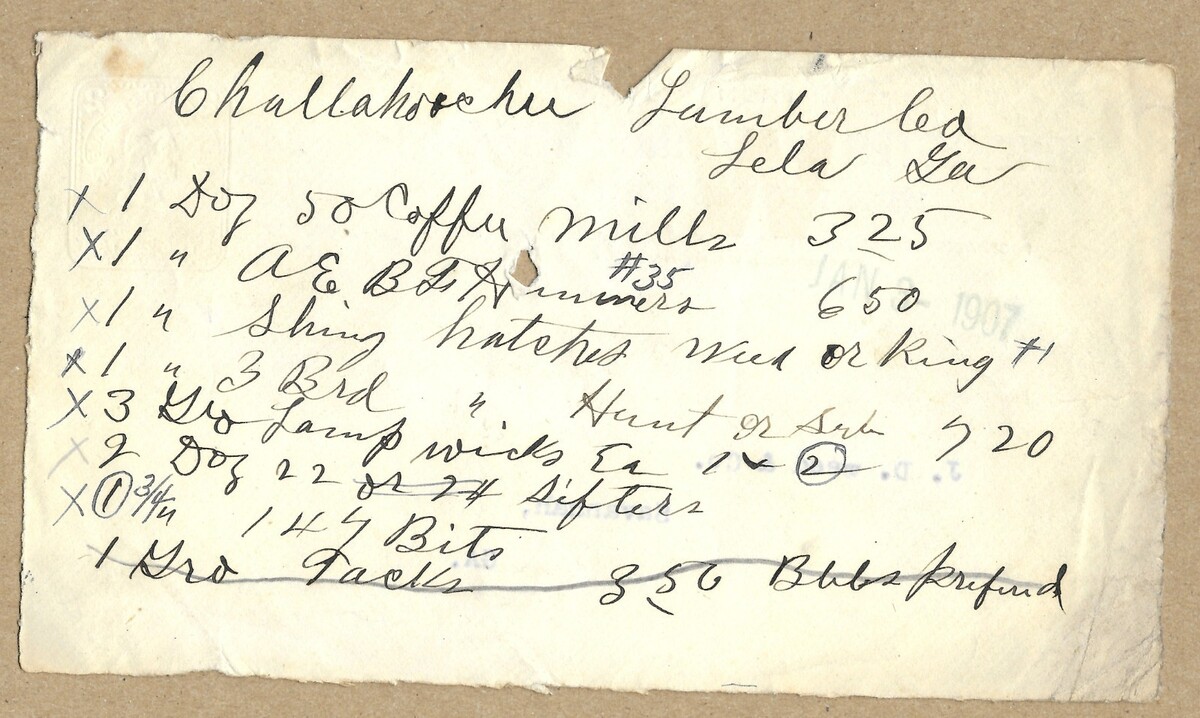 Challahoochee Lumber Co
Lela Ga
X 1 Doz 50 Coffee Mills 325
X 1 " A E B F Hammers #35 650
X 1 " Shing hatches or King #1
X 1 " 3 Brd " Hunt or 720
X 3 Gro Lamp wicks Ea 1 x 2
X 2 Doz 22 or 24 Sifters
X 1 3/4 " 147 Bits
1 Gro Tacks 350 Bbls
JAN 1907
J. D.